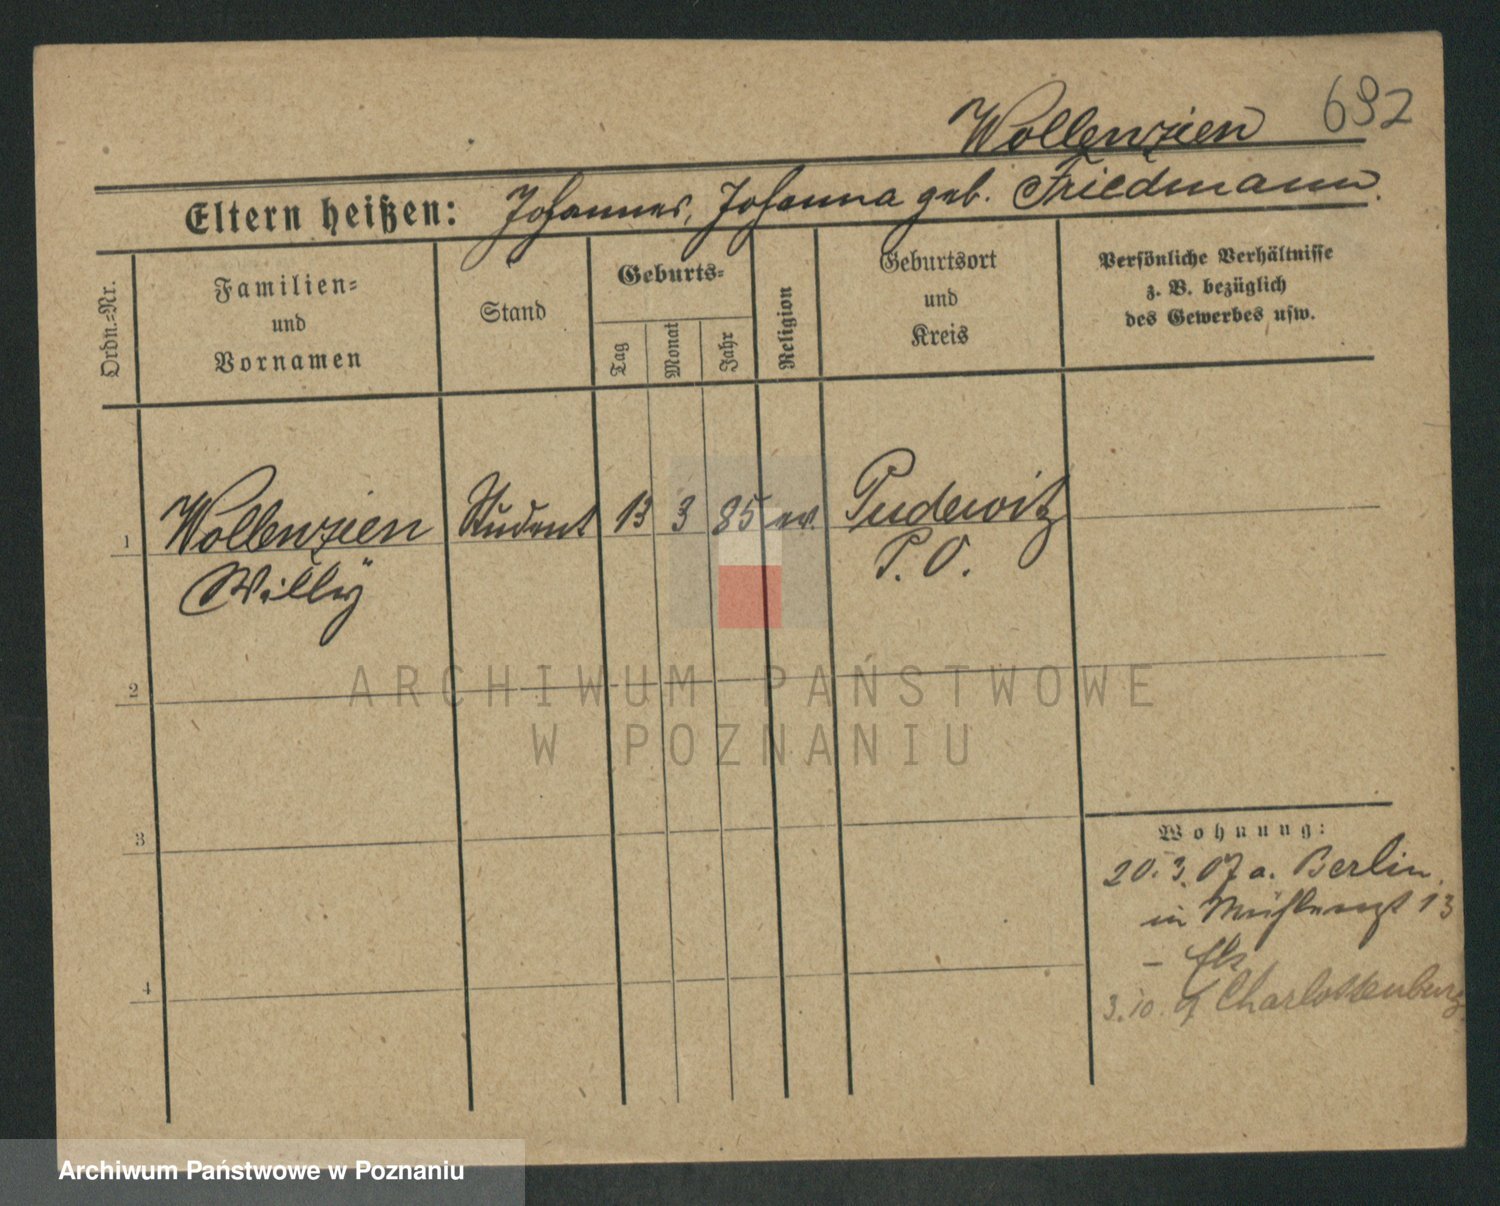 692
Wollenzien
Eltern heißen: Johannes, Johanna geb. Friedmann.
Ordn.-Nr.
Familien-
und
Vornamen
Stand
Geburts-
Tag
Monat
Jahr
Religion
Geburtsort
und
Kreis
Persönliche Verhältnisse
z. B. bezüglich
des Gewerbes usw.
1 Wollenzien Student 13 3 85 ev. Pudewitz
Willy P. O.
2
3
4
Wohnung:
20. 3. 07 a. Berlin
in 13
3. 10. 07 Charlottenburg
ARCHIWUM PAŃSTWOWE
W POZNANIU
Archiwum Państwowe w Poznaniu